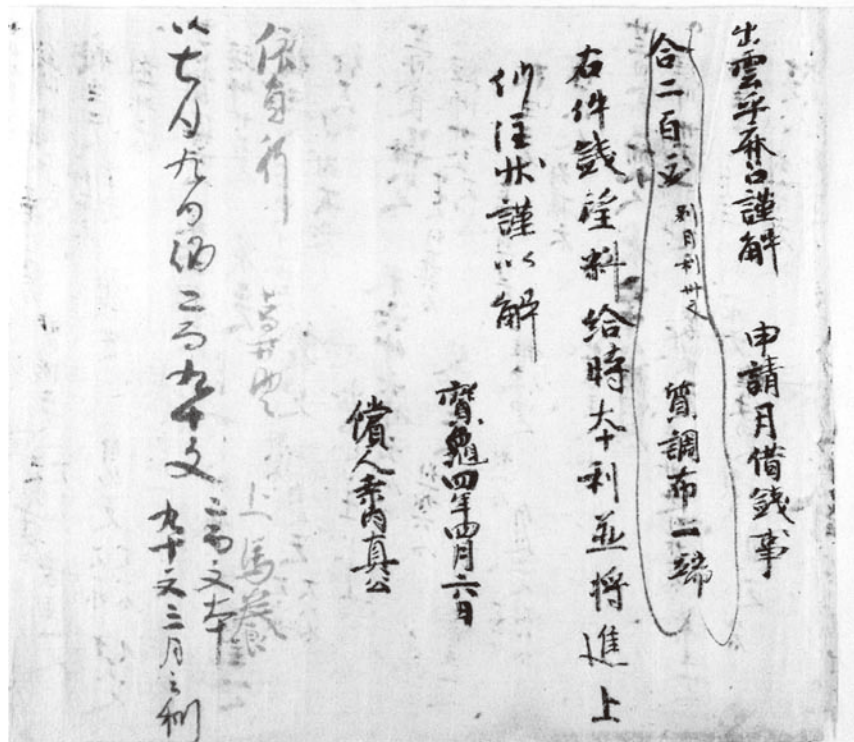 出雲乎麻呂謹解　申請月借銭事
合二百文　別月利卅文　質調布一端
右件銭望料給時本利並将進上
仍注状謹以解
寳亀四年四月六日
償人桑内真公
依員行　　上馬養
以七月九日納二百九十文　二百文本
九十文三月之利